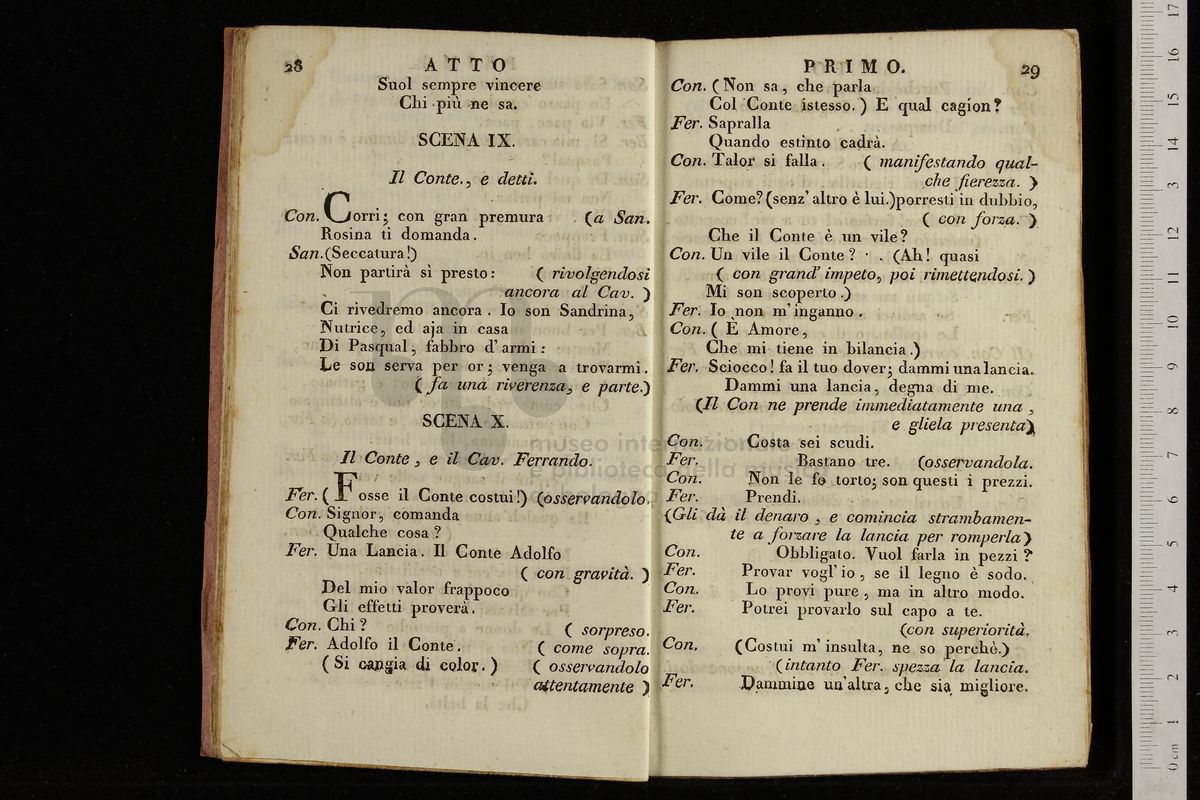 28
ATTO
Suol sempre vincere
Chi più ne sa.
SCENA IX.
Il Conte., e detti.
Con. Corri; con gran premura (a San.
Rosina ti domanda.
San. (Seccatura!)
Non partirà sì presto: ( rivolgendosi
ancora al Cav. )
Ci rivedremo ancora. Io son Sandrina,
Nutrice, ed aja in casa
Di Pasqual, fabbro d'armi:
Le son serva per or; venga a trovarmi.
( fa una riverenza, e parte.)
SCENA X.
Il Conte, e il Cav. Ferrando.
Fer. ( Fosse il Conte costui!) (osservandolo.
Con. Signor, comanda
Qualche cosa?
Fer. Una Lancia. Il Conte Adolfo
( con gravità. )
Del mio valor frappoco
Gli effetti proverà.
Con. Chi? ( sorpreso.
Fer. Adolfo il Conte. ( come sopra.
( Si cangia di color. ) ( osservandolo
attentamente )
PRIMO.
29
Con. ( Non sa, che parla
Col Conte istesso. ) E qual cagion?
Fer. Sapralla
Quando estinto cadrà.
Con. Talor si falla. ( manifestando qual-
che fierezza. )
Fer. Come? (senz'altro è lui.) porresti in dubbio,
( con forza. )
Che il Conte è un vile?
Con. Un vile il Conte? . (Ah! quasi
( con grand' impeto, poi rimettendosi. )
Mi son scoperto.)
Fer. Io non m'inganno.
Con. ( È Amore,
Che mi tiene in bilancia.)
Fer. Sciocco! fa il tuo dover; dammi una lancia.
Dammi una lancia, degna di me.
(Il Con ne prende immediatamente una,
e gliela presenta)
Con. Costa sei scudi.
Fer. Bastano tre. (osservandola.
Con. Non le fo torto; son questi i prezzi.
Fer. Prendi.
(Gli dà il denaro, e comincia strambamen-
te a forzare la lancia per romperla)
Con. Obbligato. Vuol farla in pezzi?
Fer. Provar vogl'io, se il legno è sodo.
Con. Lo provi pure, ma in altro modo.
Fer. Potrei provarlo sul capo a te.
(con superiorità.
Con. (Costui m'insulta, ne so perchè.)
(intanto Fer. spezza la lancia.
Fer. Dammine un'altra, che sia migliore.
museo internazionale
e biblioteca della musica
0 cm 1 2 3 4 5 6 7 8 9 10 11 12 13 14 15 16 17